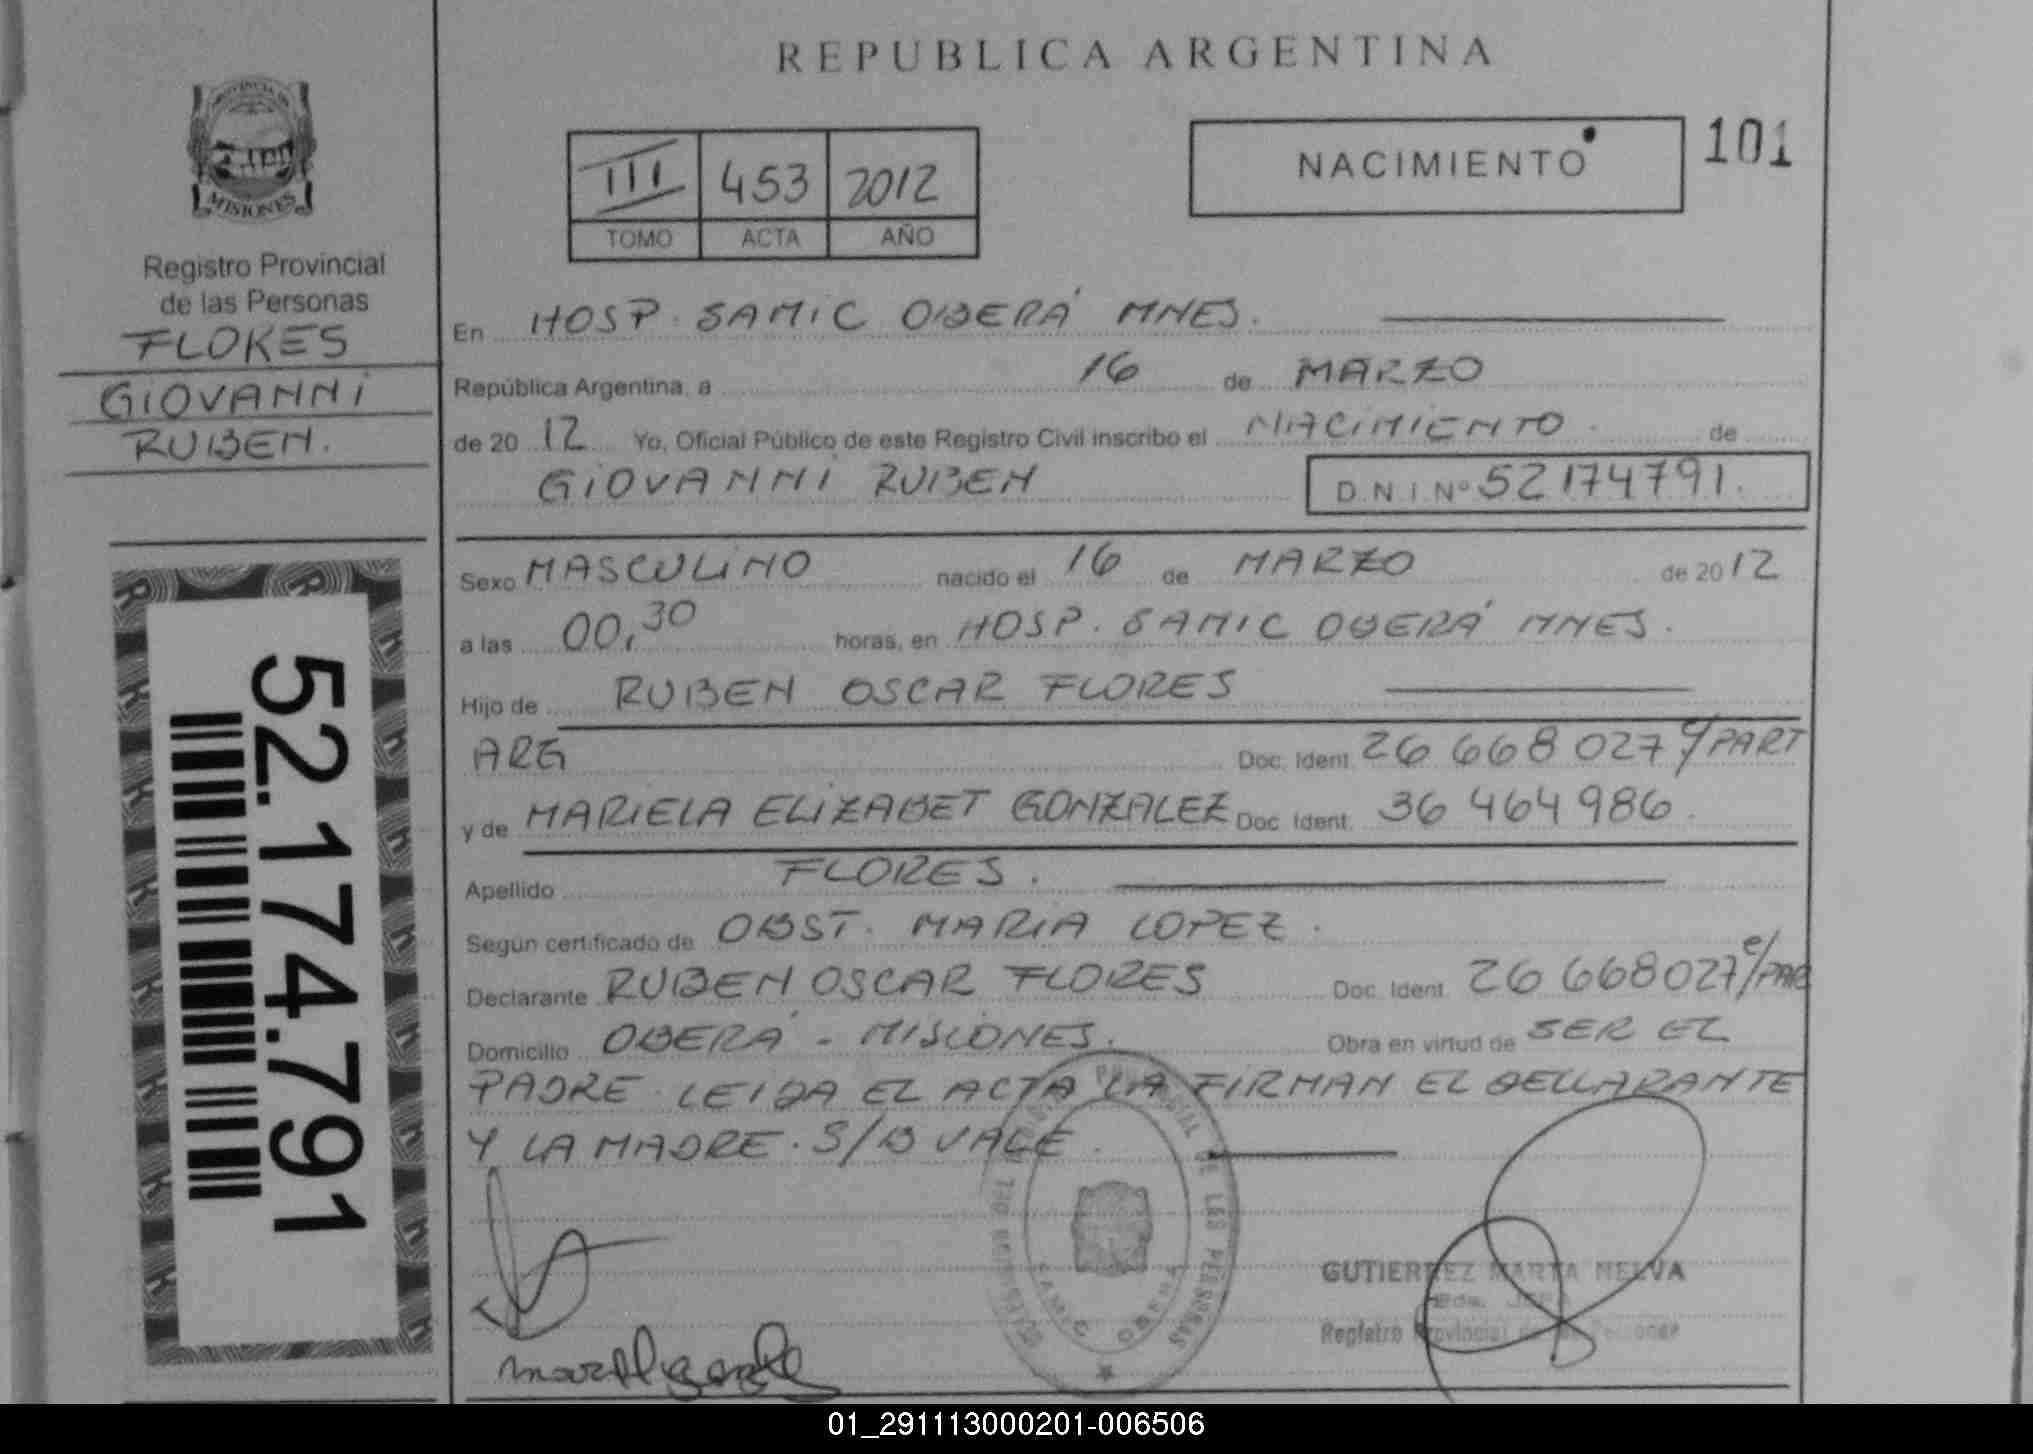 REPUBLICA ARGENTINA
PROVINCIA DE
MISIONES
Registro Provincial
de las Personas
FLORES
GIOVANNI
RUBEN.
52.174.791
III 453 2012
TOMO ACTA AÑO
NACIMIENTO
101
En HOSP. SAMIC OBERÁ MNES.
República Argentina, a 16 de MARZO
de 20 12 Yo, Oficial Público de este Registro Civil inscribo el NACIMIENTO. de
GIOVANNI RUBEN D.N.I.Nº 52174791.
Sexo MASCULINO nacido el 16 de MARZO de 20 12
a las 00,30 horas, en HOSP. SAMIC OBERÁ MNES.
Hijo de RUBEN OSCAR FLORES
ARG Doc. Ident. 26 668 027 C/PART
y de MARIELA ELIZABET GONZALEZ Doc. Ident. 36 464 986.
Apellido FLORES.
Según certificado de OBST. MARIA LOPEZ.
Declarante RUBEN OSCAR FLORES Doc. Ident. 26 668 027 C/PAR
Domicilio OBERÁ - MISIONES. Obra en virtud de SER EL
PADRE. LEIDA EL ACTA LA FIRMAN EL DECLARANTE
Y LA MADRE. S/B VALE.
GUTIERREZ MARTA NELVA
Registro Provincial de las Personas
01_291113000201-006506